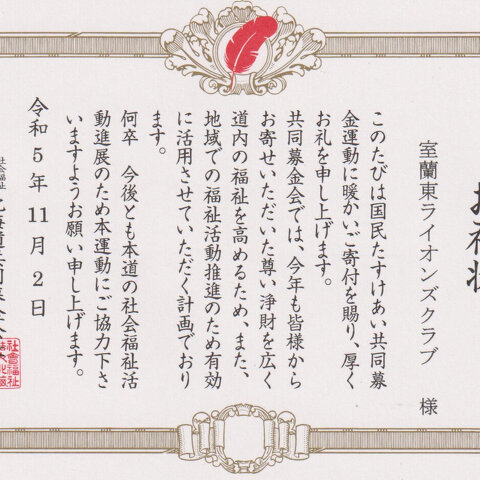 お礼状
室蘭東ライオンズクラブ 様
このたびは国民たすけあい共同募
金運動に暖かいご寄付を賜り、厚く
お礼を申し上げます。
共同募金会では、今年も皆様から
お寄せいただいた尊い浄財を広く
道内の福祉を高めるため、また、
地域での福祉活動推進のため有効
に活用させていただく計画でおり
ます。
何卒 今後とも本道の社会福祉活
動進展のため本運動にご協力下さ
いますようお願い申し上げます。
令和5年11月2日
社会福祉